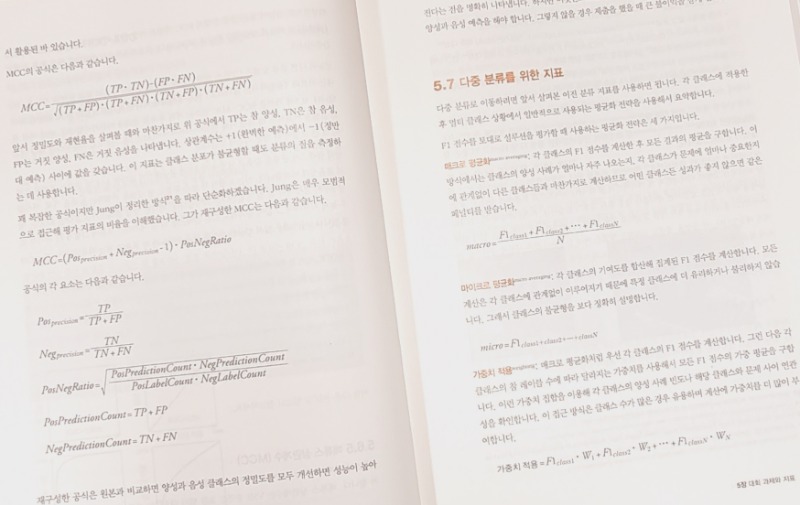 서 활용된 바 있습니다.
MCC의 공식은 다음과 같습니다.
MCC = (TP · TN) - (FP · FN) / √(TP + FP) · (TP + FN) · (TN + FP) · (TN + FN)
앞서 정밀도와 재현율을 살펴볼 때와 마찬가지로 위 공식에서 TP는 참 양성, TN은 참 음성,
FP는 거짓 양성, FN은 거짓 음성을 나타냅니다. 상관계수는 +1(완벽한 예측)에서 -1(정반
대 예측) 사이에 값을 갖습니다. 이 지표는 클래스 분포가 불균형할 때도 분류의 질을 측정하
는 데 사용합니다.
꽤 복잡한 공식이지만 Jung이 정리한 방식을 따라 단순화하겠습니다. Jung은 매우 모범적
으로 접근해 평가 지표의 비율을 이해했습니다. 그가 재구성한 MCC는 다음과 같습니다.
MCC = (Pos precision + Neg precision - 1) · PosNegRatio
공식의 각 요소는 다음과 같습니다.
Pos precision = TP / TP + FP
Neg precision = TN / TN + FN
PosNegRatio = √ PosPredictionCount · NegPredictionCount / PosLabelCount · NegLabelCount
PosPredictionCount = TP + FP
NegPredictionCount = TN + FN
재구성한 공식은 원본과 비교하면 양성과 음성 클래스의 정밀도를 모두 개선하면 성능이 높아
양성과 음성 예측을 해야 합니다. 그렇지 않을 경우 제출을 했을 때 큰
5.7 다중 분류를 위한 지표
다중 분류로 이동하려면 앞서 살펴본 이진 분류 지표를 사용하면 됩니다. 각 클래스에 적용한
후 멀티 클래스 상황에서 일반적으로 사용되는 평균화 전략을 사용해서 요약합니다.
F1 점수를 토대로 솔루션을 평가할 때 사용하는 평균화 전략은 세 가지입니다.
매크로 평균화 macro averaging: 각 클래스의 F1 점수를 계산한 후 모든 결과의 평균을 구합니다. 이
방식에서는 클래스의 양성 사례가 얼마나 자주 나오는지, 각 클래스가 문제에 얼마나 중요한지
에 관계없이 다른 클래스들과 마찬가지로 계산하므로 어떤 클래스든 성과가 좋지 않으면 같은
페널티를 받습니다.
macro = F1 class1 + F1 class2 + ⋯ + F1 classN / N
마이크로 평균화 micro averaging: 각 클래스의 기여도를 합산해 집계된 F1 점수를 계산합니다. 모든
계산은 각 클래스에 관계없이 이루어지기 때문에 특정 클래스에 더 유리하거나 불리하지 않습
니다. 그래서 클래스의 불균형을 보다 정확히 설명합니다.
micro = F1 class1+class2+⋯+classN
가중치 적용 weighting: 매크로 평균화처럼 우선 각 클래스의 F1 점수를 계산합니다. 그런 다음 각
클래스의 참 레이블 수에 따라 달라지는 가중치를 사용해서 모든 F1 점수의 가중 평균을 구합
니다. 이런 가중치 집합을 이용해 각 클래스의 양성 사례 빈도나 해당 클래스와 문제 사이 연관
성을 확인합니다. 이 접근 방식은 클래스 수가 많은 경우 유용하며 계산에 가중치를 더 많이 부
여합니다.
가중치 적용 = F1 class1 · W1 + F1 class2 · W2 + ⋯ + F1 classN · WN
5장 대회 과제와 지표